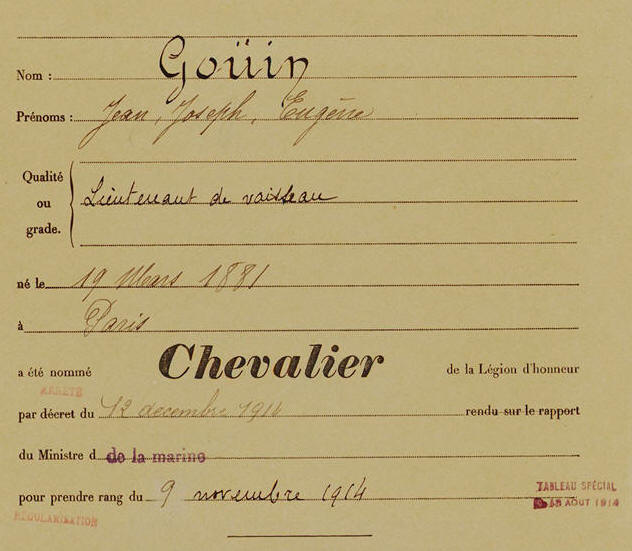 Nom : Goüin
Prénoms : Jean, Joseph, Eugène
Qualité
ou
grade.
Lieutenant de vaisseau
né le 19 Mars 1881
à Paris
a été nommé Chevalier de la Légion d'honneur
ARRÊTÉ
par décret du 12 décembre 1914 rendu sur le rapport
du Ministre d de la marine
pour prendre rang du 9 novembre 1914
TABLEAU SPÉCIAL
AOUT 1914
RÉGULARISATION